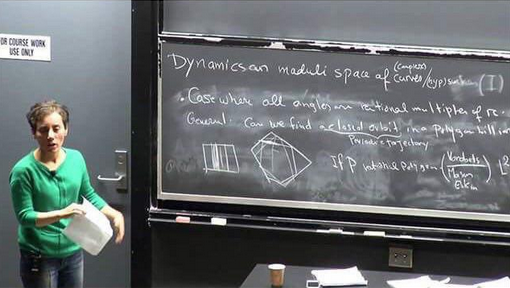 FOR COURSE WORK
USE ONLY
Dynamics on moduli space of (complex) curves / (hyp) sur (I)
• Case where all angles are rational multiples of π.
General: Can we find a closed orbit in a polygon billiar
Periodic trajectory
If P rational Polygon
Masur